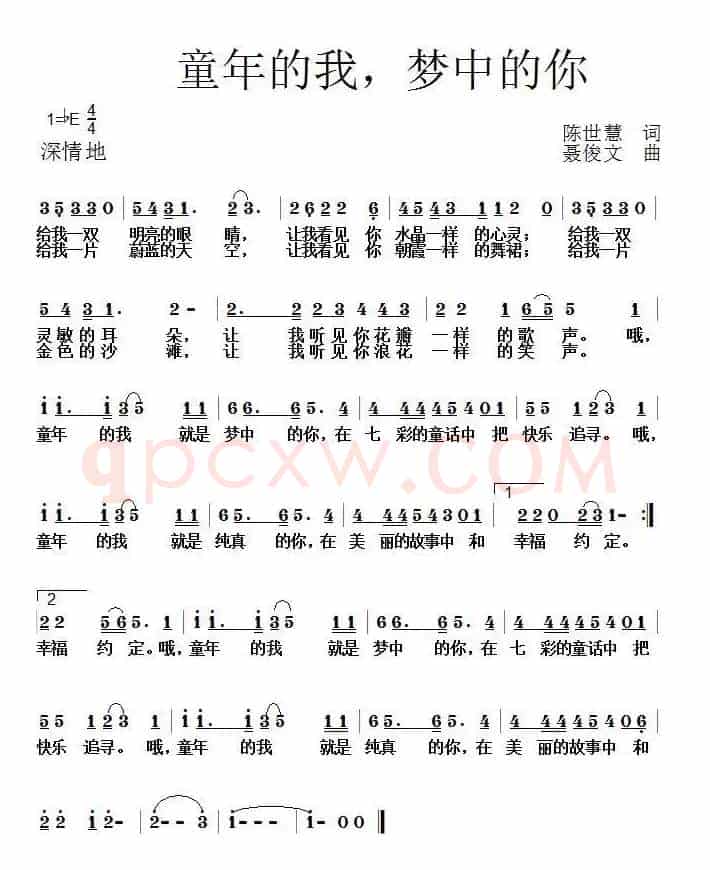 童年的我，梦中的你
1=♭E 4/4
陈世慧 词
深情地
聂俊文 曲
35330 | 5431. 23. | 2622 6 | 4543 11 12 0 | 35330 |
给我一双 明亮的眼 睛， 让我看见 你 水晶一样 的心灵； 给我一双
给我一片 蔚蓝的天 空， 让我看见 你 朝霞一样 的舞裙； 给我一片
5 4 31. 2- | 2. 2 2 3 4 4 3 | 2 2 165 5 1 |
灵敏的耳 朵， 让 我听见你花瓣 一样 的歌声。 哦，
金色的沙 滩， 让 我听见你浪花 一样 的笑声。
i i. i35 11 | 66. 65. 4 | 4 4445401 | 55 123 1 |
童年 的我 就是 梦中 的你，在 七 彩的童话中 把 快乐 追寻。 哦，
qpcxw.COM
i i. i35 11 | 65. 65. 4 | 4 4454301 | 1 220 231- :‖
童年 的我 就是 纯真 的你，在 美 丽的故事中 和 幸福 约定。
2
22 565. 1 | i i. i35 11 | 66. 65. 4 | 4 4445401 |
幸福 约定。哦， 童年 的我 就是 梦中 的你，在 七 彩的童话中 把
55 123 1 | i i. i35 11 | 65. 65. 4 | 4 4445406 |
快乐 追寻。哦， 童年 的我 就是 纯真 的你，在 美 丽的故事中 和
2 2 i 2- | 2--3 | i--- | i-00 ‖